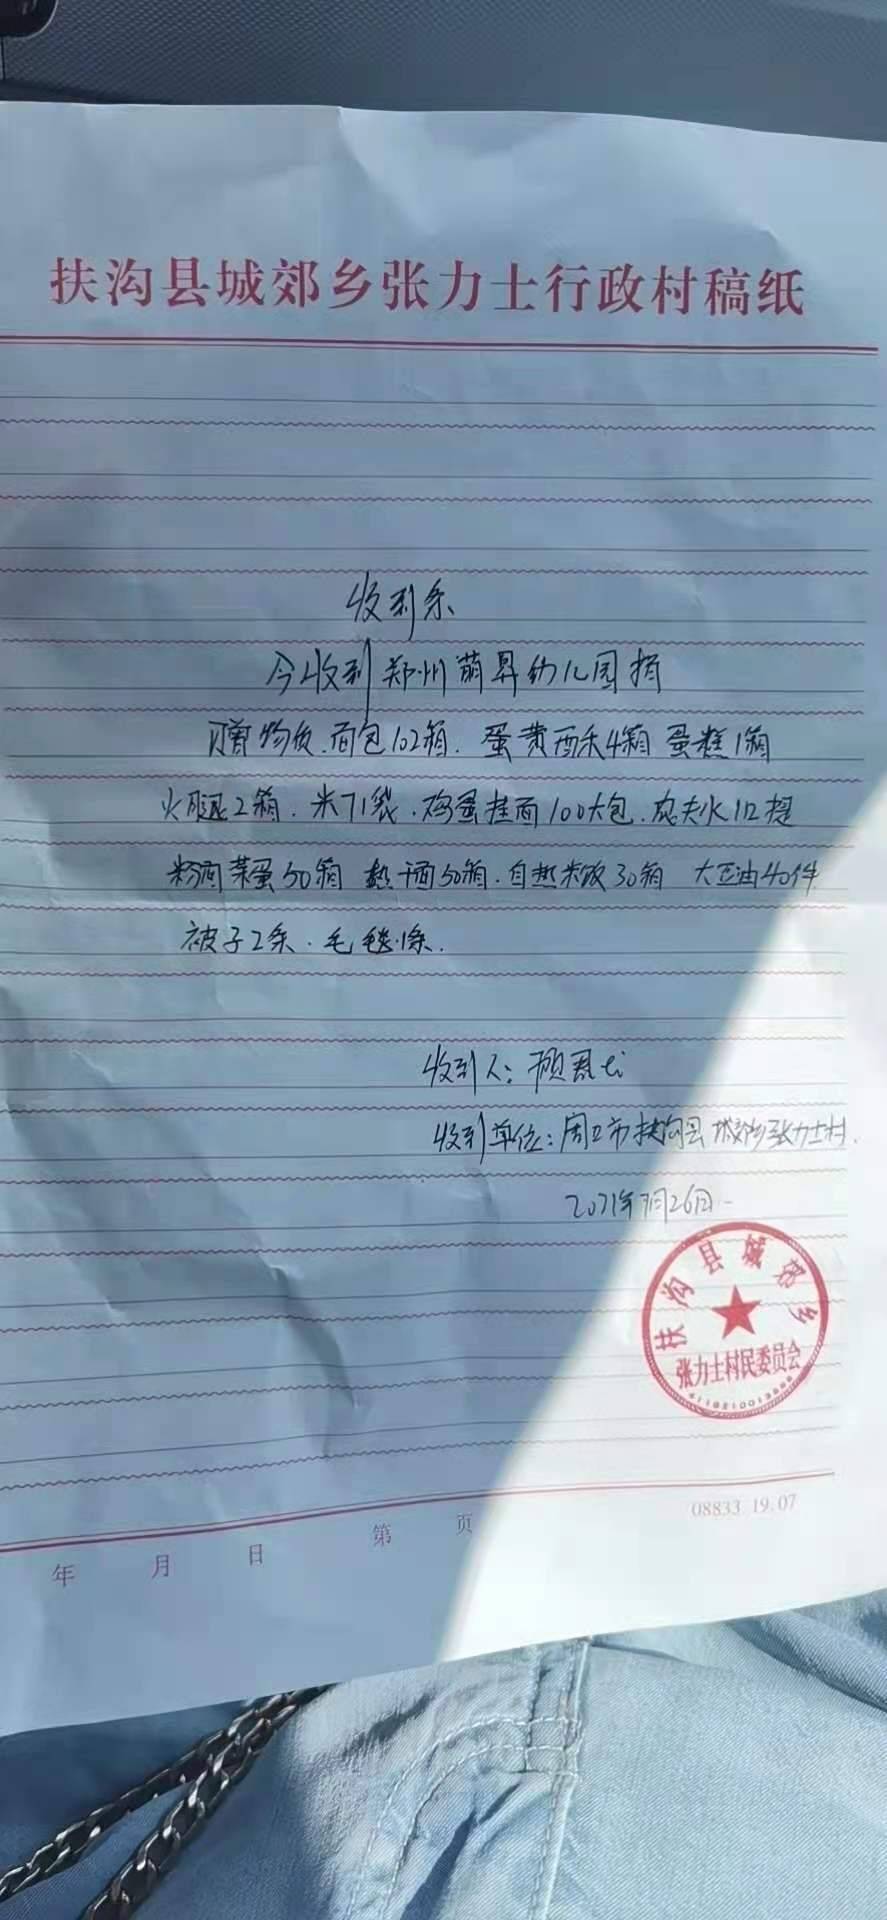 扶沟县城郊乡张力士行政村稿纸
收到条
今收到郑州萌昇幼儿园捐
赠物资.面包102箱.蛋黄酥4箱 蛋糕1箱
火腿2箱.米71袋.鸡蛋挂面100大包.农夫水112提
菜蛋50箱 热干面50箱.自热米饭30箱 大豆油40件
被子2条.毛毯1条.
收到人:顾
收到单位:周口市扶沟县城郊乡张力士村.
2021年7月26日
扶沟县城郊乡
张力士村民委员会
08833 19.07
年 月 日 第 页